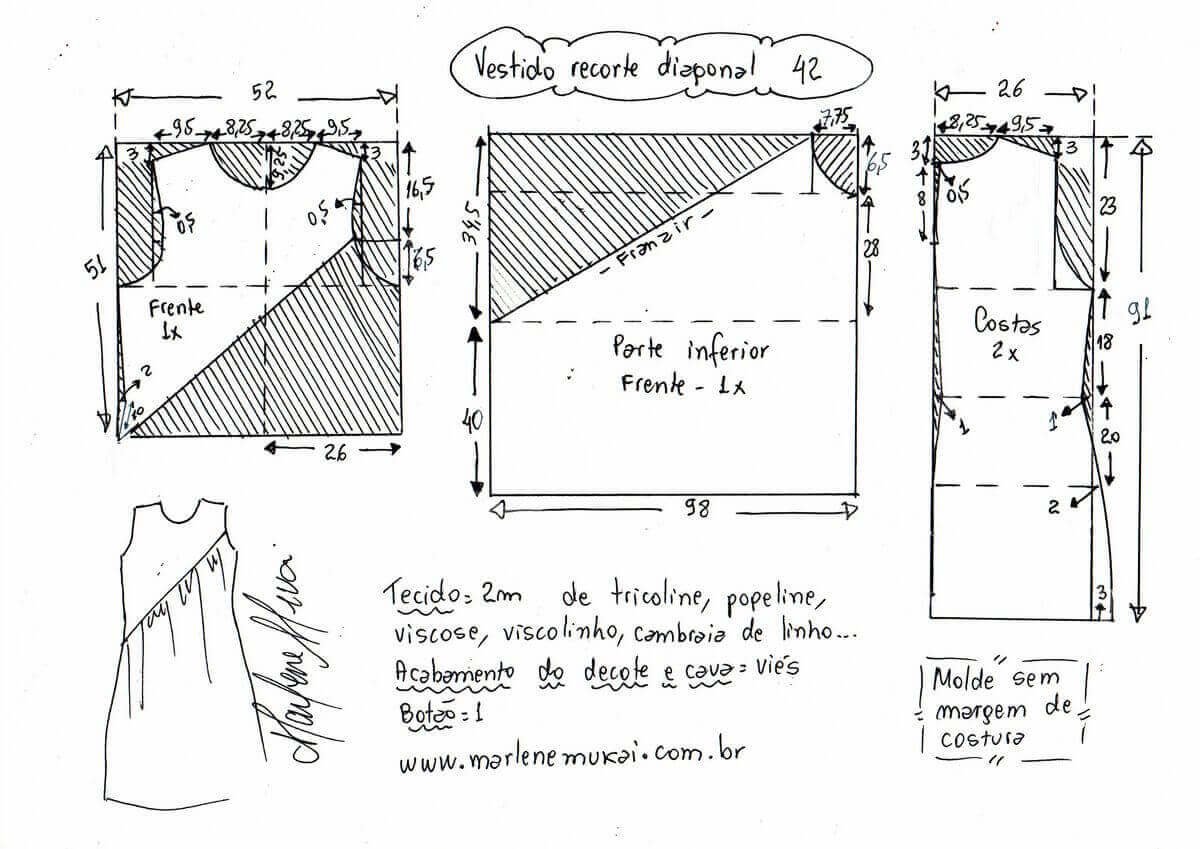 Vestido recorte diagonal 42
52
9,5 8,25 8,25 9,5
3
9,25
3
16,5
0,5
0,5
6,5
51
Frente
1x
2
10
26
7,75
6,5
34,5
- Franzir -
28
Parte inferior
Frente - 1x
40
98
26
8,25 9,5
3
3
0,5
8
23
Costas
2x
91
18
1
1
20
2
3
Tecido = 2m de tricoline, popeline,
viscose, viscolinho, cambraia de linho...
Acabamento do decote e cava = viés
Botão = 1
www.marlenemukai.com.br
Marlene Mukai
Molde sem
margem de
costura